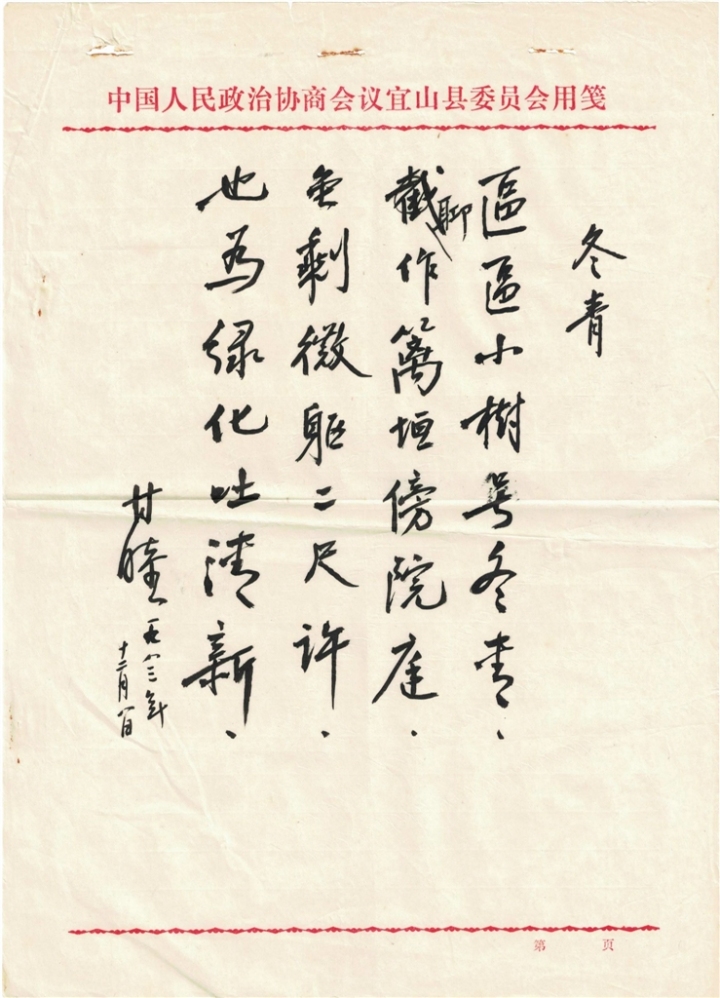 中国人民政治协商会议宜山县委员会用笺
冬青
區區小樹号冬青、
截聊作篱垣傍院庭、
剩微躯二尺许、
也為绿化吐清新、
甘
一九八三年
十二月八日
第 页